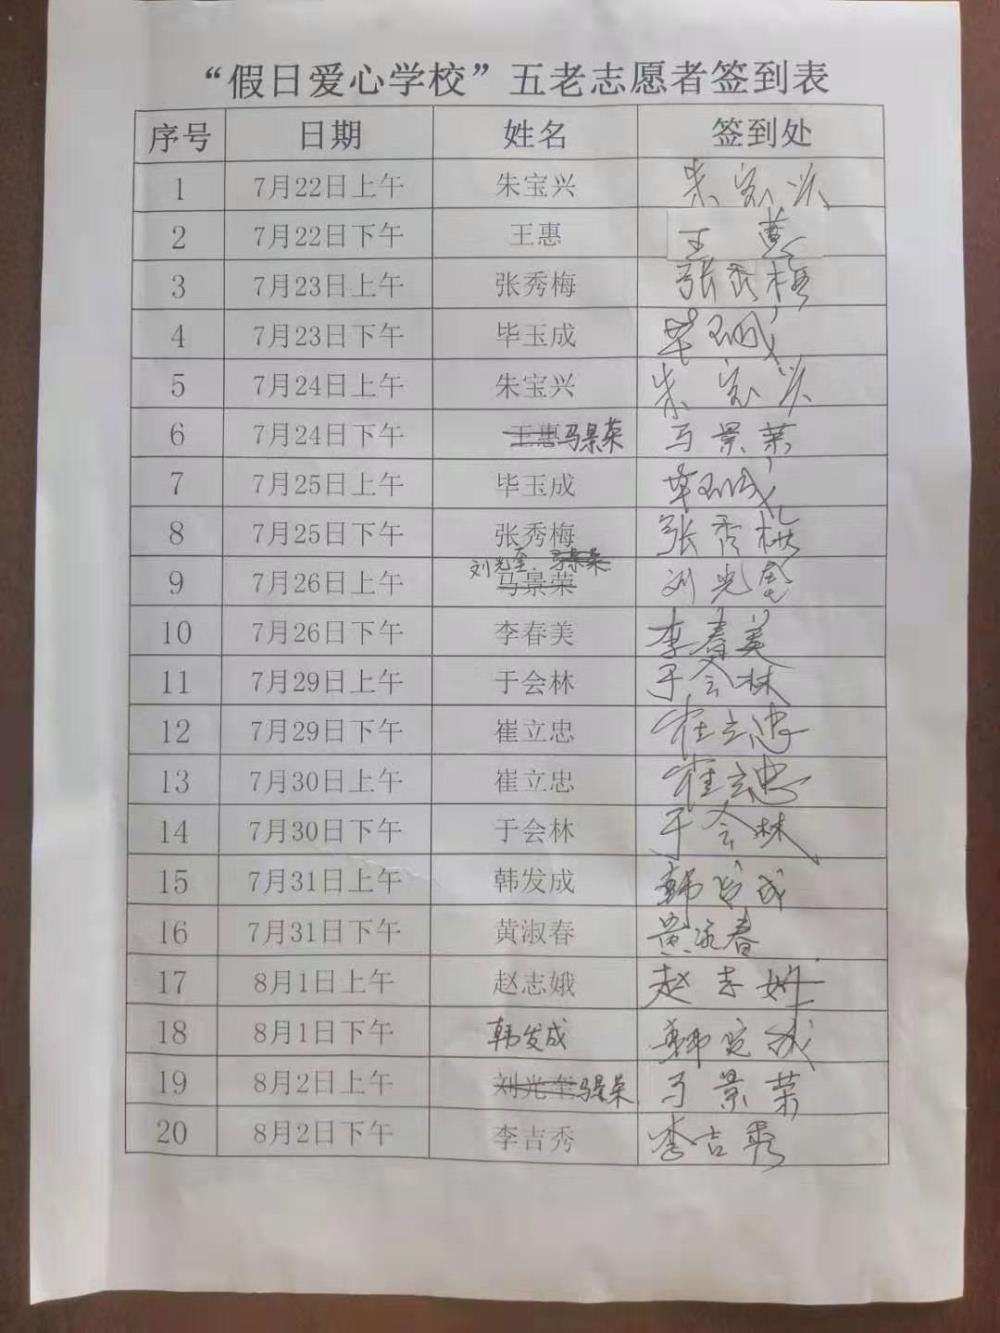 “假日爱心学校”五老志愿者签到表
序号 日期 姓名 签到处
1 7月22日上午 朱宝兴 朱宝兴
2 7月22日下午 王惠 王惠
3 7月23日上午 张秀梅 张秀梅
4 7月23日下午 毕玉成 毕玉成
5 7月24日上午 朱宝兴 朱宝兴
6 7月24日下午 王惠马景荣 马景荣
7 7月25日上午 毕玉成 毕玉成
8 7月25日下午 张秀梅 张秀梅
刘光奎.马景荣
9 7月26日上午 马景荣 刘光奎
10 7月26日下午 李春美 李春美
11 7月29日上午 于会林 于会林
12 7月29日下午 崔立忠 崔立忠
13 7月30日上午 崔立忠 崔立忠
14 7月30日下午 于会林 于会林
15 7月31日上午 韩发成 韩发成
16 7月31日下午 黄淑春 黄淑春
17 8月1日上午 赵志娥 赵志娥
18 8月1日下午 韩发成 韩发成
19 8月2日上午 刘光奎马景荣 马景荣
20 8月2日下午 李吉秀 李吉秀